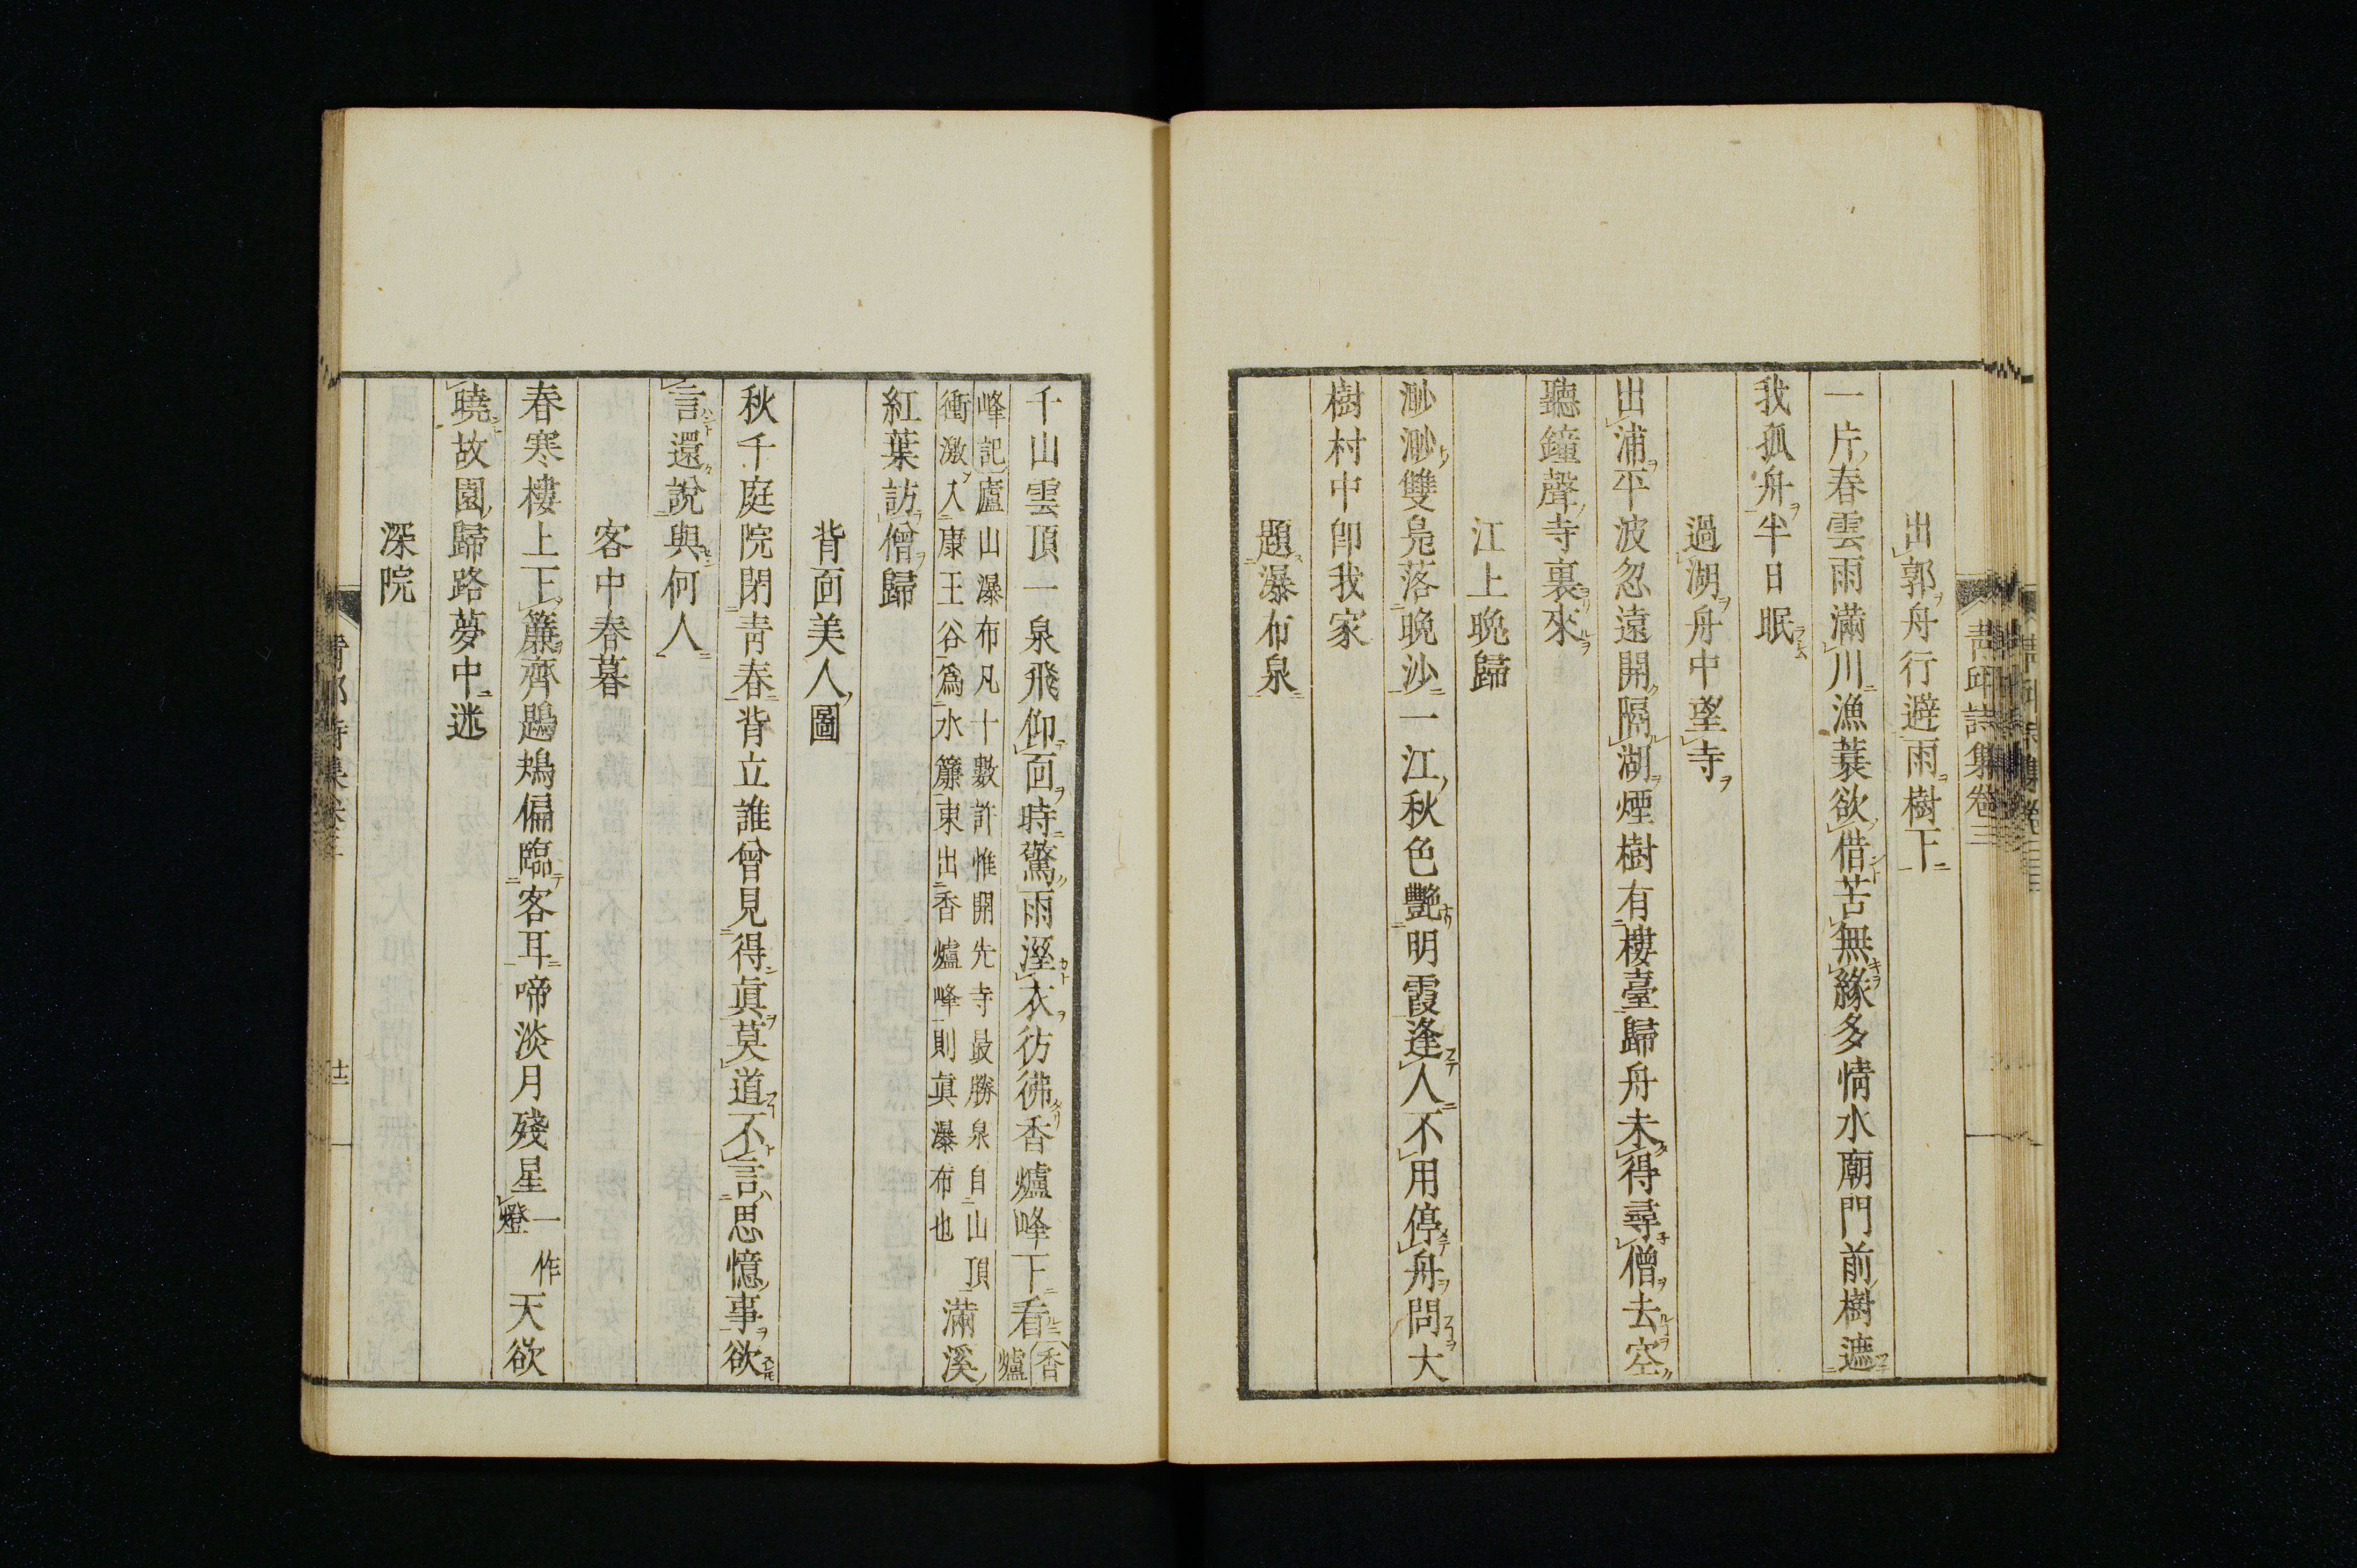 出郭舟行避雨樹下
一片春雲雨滿川漁蓑欲借苦無緣多情水廟門前樹遮
我孤舟半日眠
過湖舟中望寺
出浦平波忽遠開隔湖煙樹有樓臺歸舟未得尋僧去空
聽鐘聲寺裏來
江上晚歸
渺渺雙鳧落晚沙一江秋色艷明霞逢人不用停舟問大
樹村中卽我家
題瀑布泉
千山雲頂一泉飛仰面時驚雨溼衣彷彿香爐峰下看香爐
峰記廬山瀑布凡十數許惟開先寺最勝泉自山頂
衝激入康王谷爲水簾東出香爐峰則眞瀑布也滿溪
紅葉訪僧歸
背面美人圖
秋千庭院閉靑春背立誰曾見得眞莫道不言思憶事欲
言還說與何人
客中春暮
春寒樓上下簾齊鶗鴂偏臨客耳啼淡月殘星一作燈天欲
曉故園歸路夢中迷
深院
靑邱詩集卷三